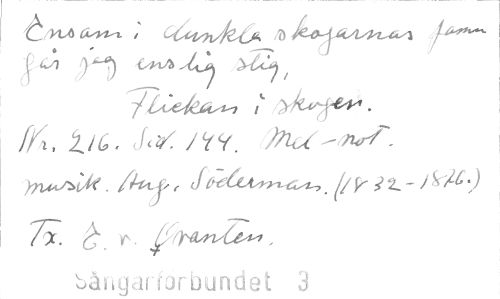 Ensam i dunkla skogarnas famn
går jag enslig stig,
Flickan i skogen.
Nr. 216. Sid. 144. Mel-not.
musik. Aug. Söderman. (1832-1876.)
Tx. E. v. Qvanten.
Sångarförbundet 3